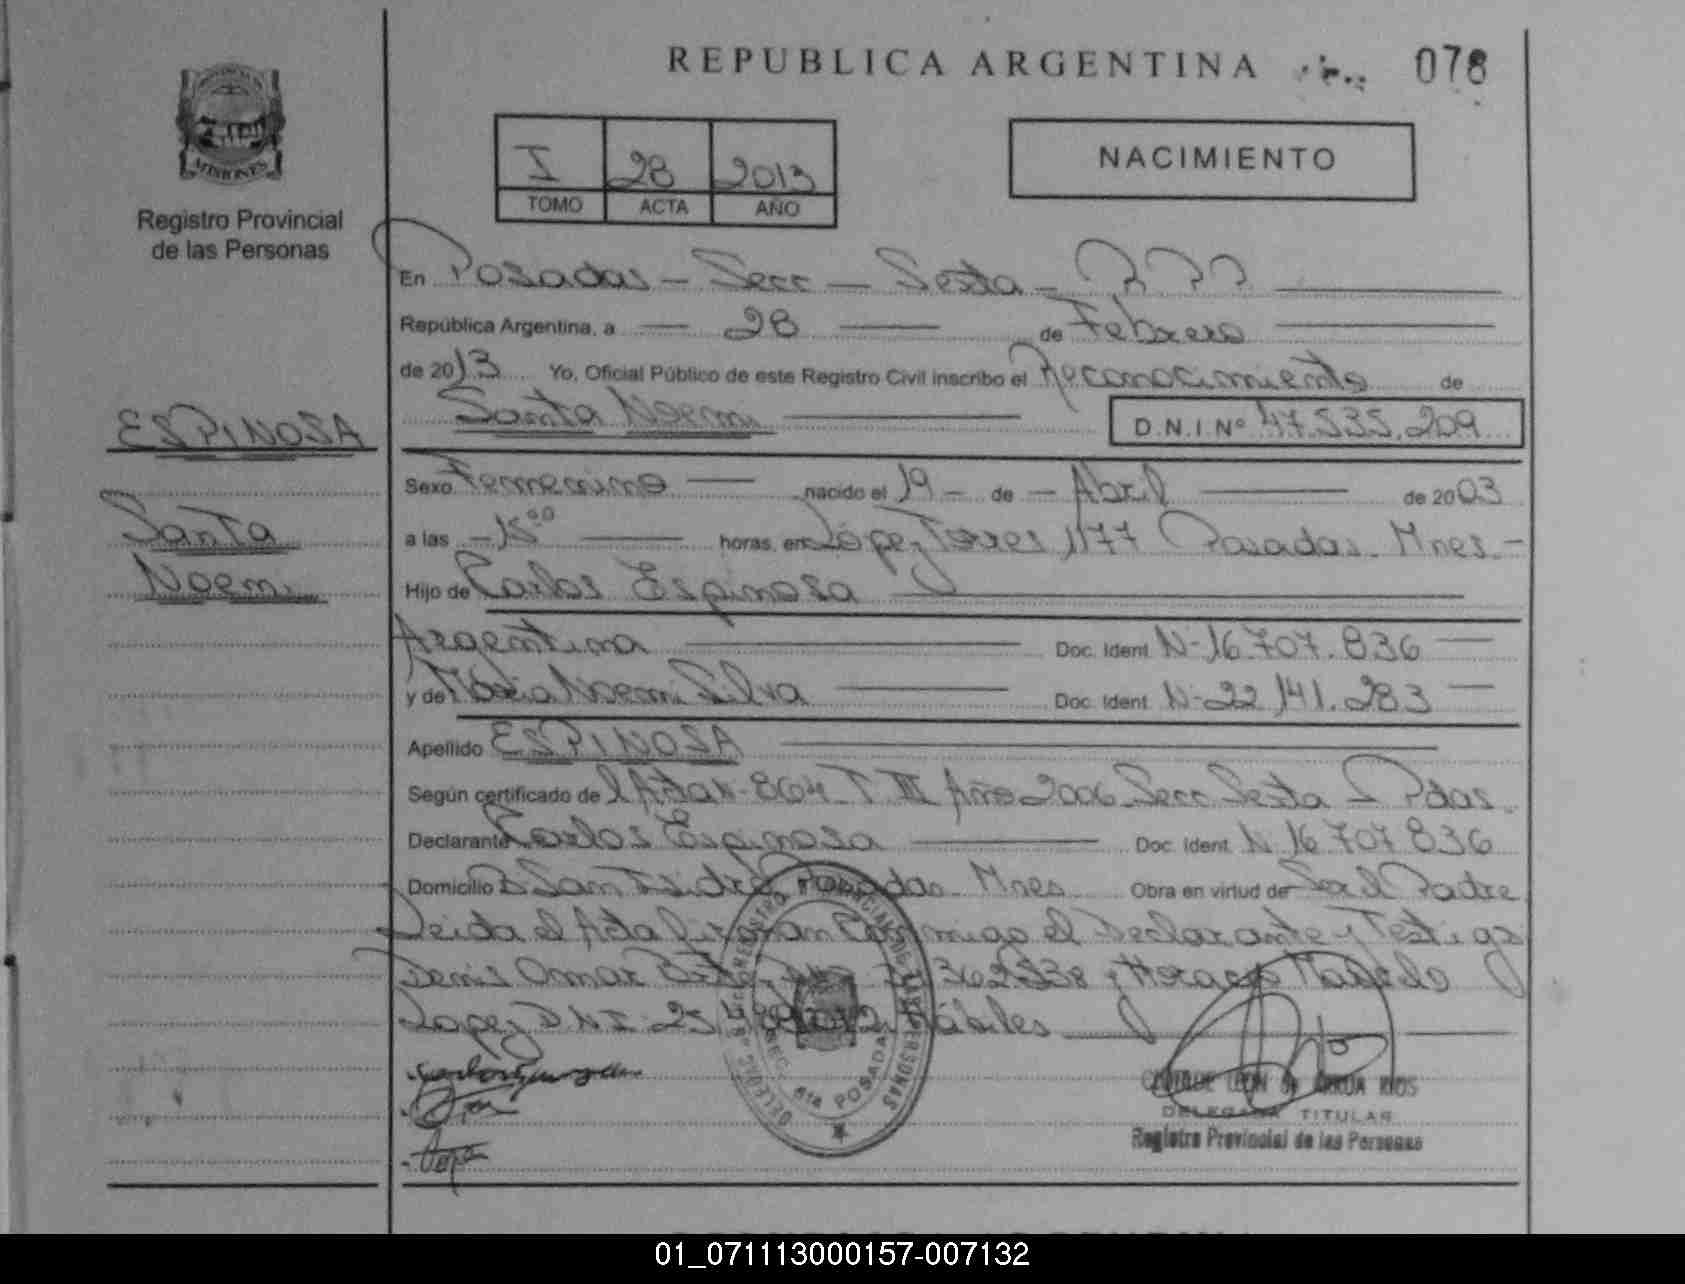 REPUBLICA ARGENTINA
078
MISIONES
Registro Provincial
de las Personas
I 28 2013
TOMO ACTA AÑO
NACIMIENTO
En Posadas - Secc - Sexta -
República Argentina, a 28 de Febrero
de 2013 Yo, Oficial Público de este Registro Civil inscribo el Reconocimiento de
Santa Noemi D.N.I.Nº 47.535.209
ESPINOSA
Santa
Noemi
Sexo Femenino nacido el 19 - de - Abril de 2003
a las - 15 00 horas, en López Torres 1177 Posadas - Mnes. -
Hijo de Carlos Espinosa
Argentina Doc. Ident. Nº 16.707.836
y de María Noemi Silva Doc. Ident. Nº 22.141.283
Apellido ESPINOSA
Según certificado de l Acta Nº 864 T III Año 2006 Secc Sexta Pdas.
Declarante Carlos Espinosa Doc. Ident. Nº 16.707.836
Domicilio Bº San Isidro Posadas Mnes Obra en virtud de Ser el Padre
Leida el Acta firman Conmigo el Declarante y Testigos
Denis Omar 362538 y Horacio
Lopez D.N.I. 25 Hábiles
DELEGADA TITULAR
Registro Provincial de las Personas
SECC. 6ta POSADAS
01_071113000157-007132